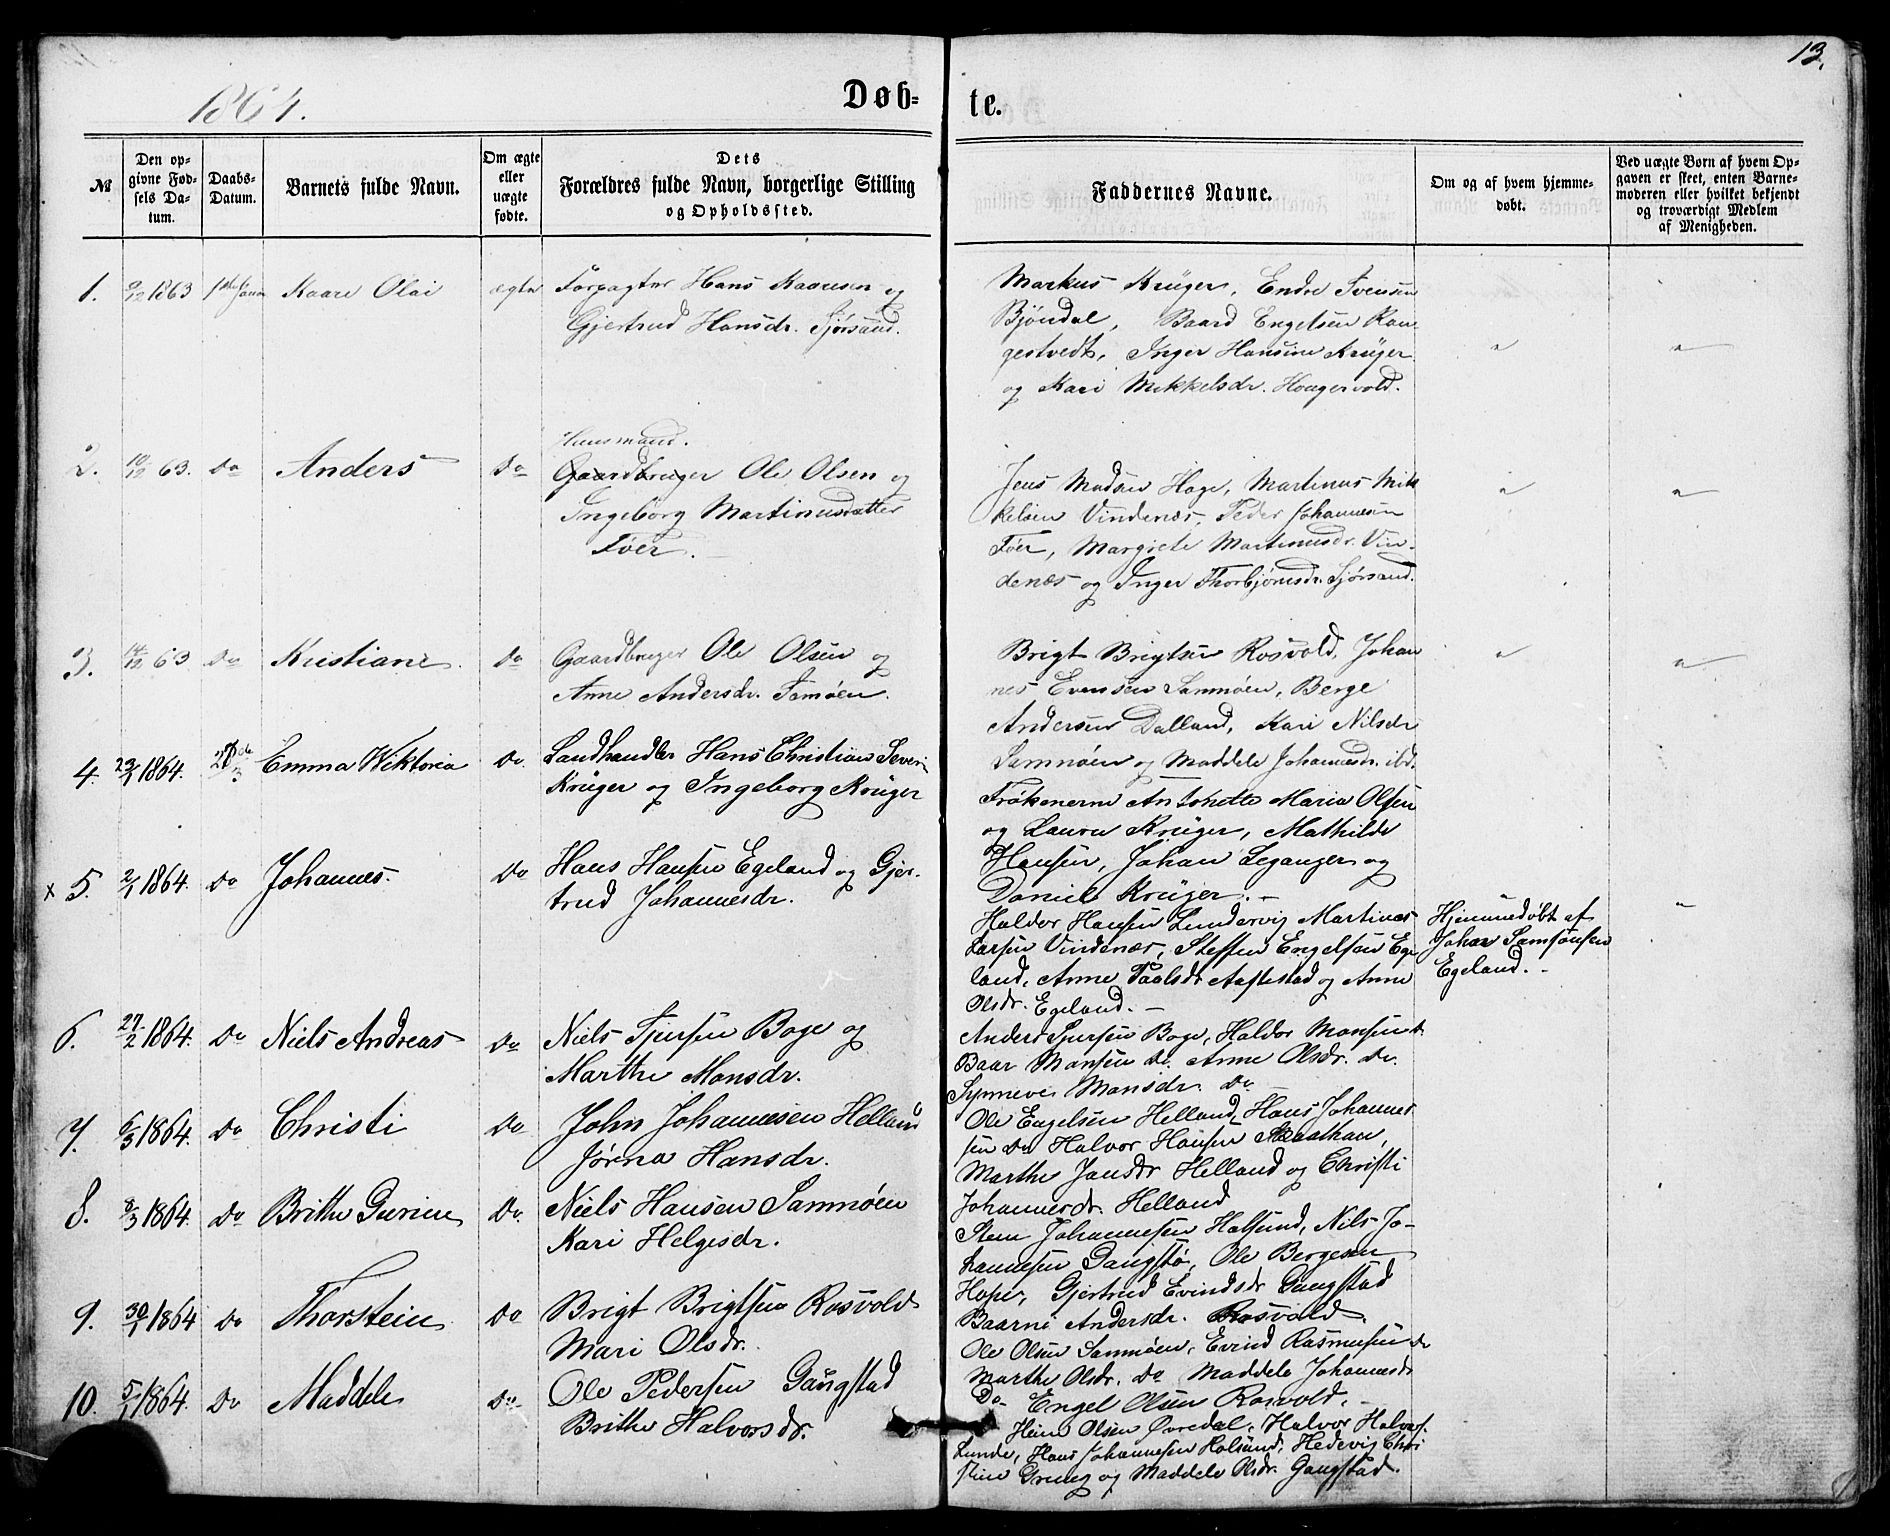 13.
1864.
Døb-
te.
№
Den op-
givne Fød-
sels Da-
tum.
Daabs-
Datum.
Barnets fulde Navn.
Om ægte
eller
uægte
fødte.
Dets
Forældres fulde Navn, borgerlige Stilling
og Opholdssted.
Faddernes Navne.
Om og af hvem hjemme-
døbt.
Ved uægte Børn af hvem Op-
gaven er skeet, enten Barne-
moderen eller hvilket bekjendt
og troværdigt Medlem
af Menigheden.
1. 9/12 1863 Kaare Olai ægte Forpagter Hans og
Gjertrud Hansdr. Sjørsand.
Markus Krüger, Endre Svensen
Bjøndal, Baard Engelsen Ran-
gestvedt, Inger Hansine Krüger
og Kari Mikkelsdr. Hougervold.
2. 10/12 63. Do Anders Do
Huusmand.
Gaardbruger Ole Olsen og
Ingeborg Martinusdatter
Tøer.
Jens Madsen Hage, Martinus Mik
kelsen Vindenæs, Peder Johannesen
Tøer, Margrete Martinusdr. Vin-
denæs og Inger Thorbjørnsdr. Sjørsand.
3. 14/12 63 Do Kristiane Do Gaardbruger Ole Olsen og
Anne Andersdr. Samøen.
Brigt Brigtsen Rosvold, Johan
nes Evensen Samnøen, Berge
Andersen Dalland, Kari Nilsdr
Samnøen og Maddele Johannesdr. ibd.
4. 23/1 1864. Emma Wiktoria Do. Landhandler Hans Christian Severin
Krüger og Ingeborg Krüger
Frøknerne Antonette Maria Olsen
og Laura Krüger, Mathilde
Hansen, Johan Leganger og
Daniel Krüger. -
x 5. 2/1 1864. Do Johannes. Do Hans Hansen Egeland og Gjer-
trud Johannesdr.
Haldor Hansen Lundervig Martines
Larsen Vindenæs, Steffen Engelsen Ege
land, Anne Paalsdr Axlestad og Anne
Olsdr. Egeland. -
Hjemmedøbt af
Johan Samsonsen
Egeland. -
6. 27/2 1864. Do Niels Andreas Do Niels Sjursen Boge og
Marthe Monsdr.
Anders Sjursen Boge, Haldor Monsen d.
Baar Monsen do. Anne Olsdr. do.
Synneve Monsdr. do
7. 6/3 1864. Do Christi Do John Johannesen Helland
Jørna Hansdr.
Ole Engelsen Helland, Hans Johannes
sen do Halvor Hansen
Marthe Jansdr Helland og Christi
Johannesdr. Helland
8. 8/3 1864. Do Brithe Gurine Do. Niels Hansen Samnøen
Kari Helgesdr.
Sten Johannesen Halsund, Nils Jo-
hannesen Gangstø, Ole Bergesen
Hope, Gjertrud Evindsdr Gangstad
Baarni Andersdr. Rosvold.
9. 30/1 1864 Do Thorstein Do Brigt Brigtsen Rosvold
Mari Olsdr.
Ole Olsen Samnøen, Evind Rasmusen do
Marthe Olsdr. do Maddele Johannesdr
Do- Engel Olsen Rosvold. -
10. 5/1 1864. Do Maddele Do Ole Pedersen Gangstad
Brithe Halvorsdr.
Hein Olsen Øvredal, Halvor Halvors.
Lunde, Hans Johannesen Halsund, Hedevig Chri
stine Grung og Maddele Olsdr. Gangstad.